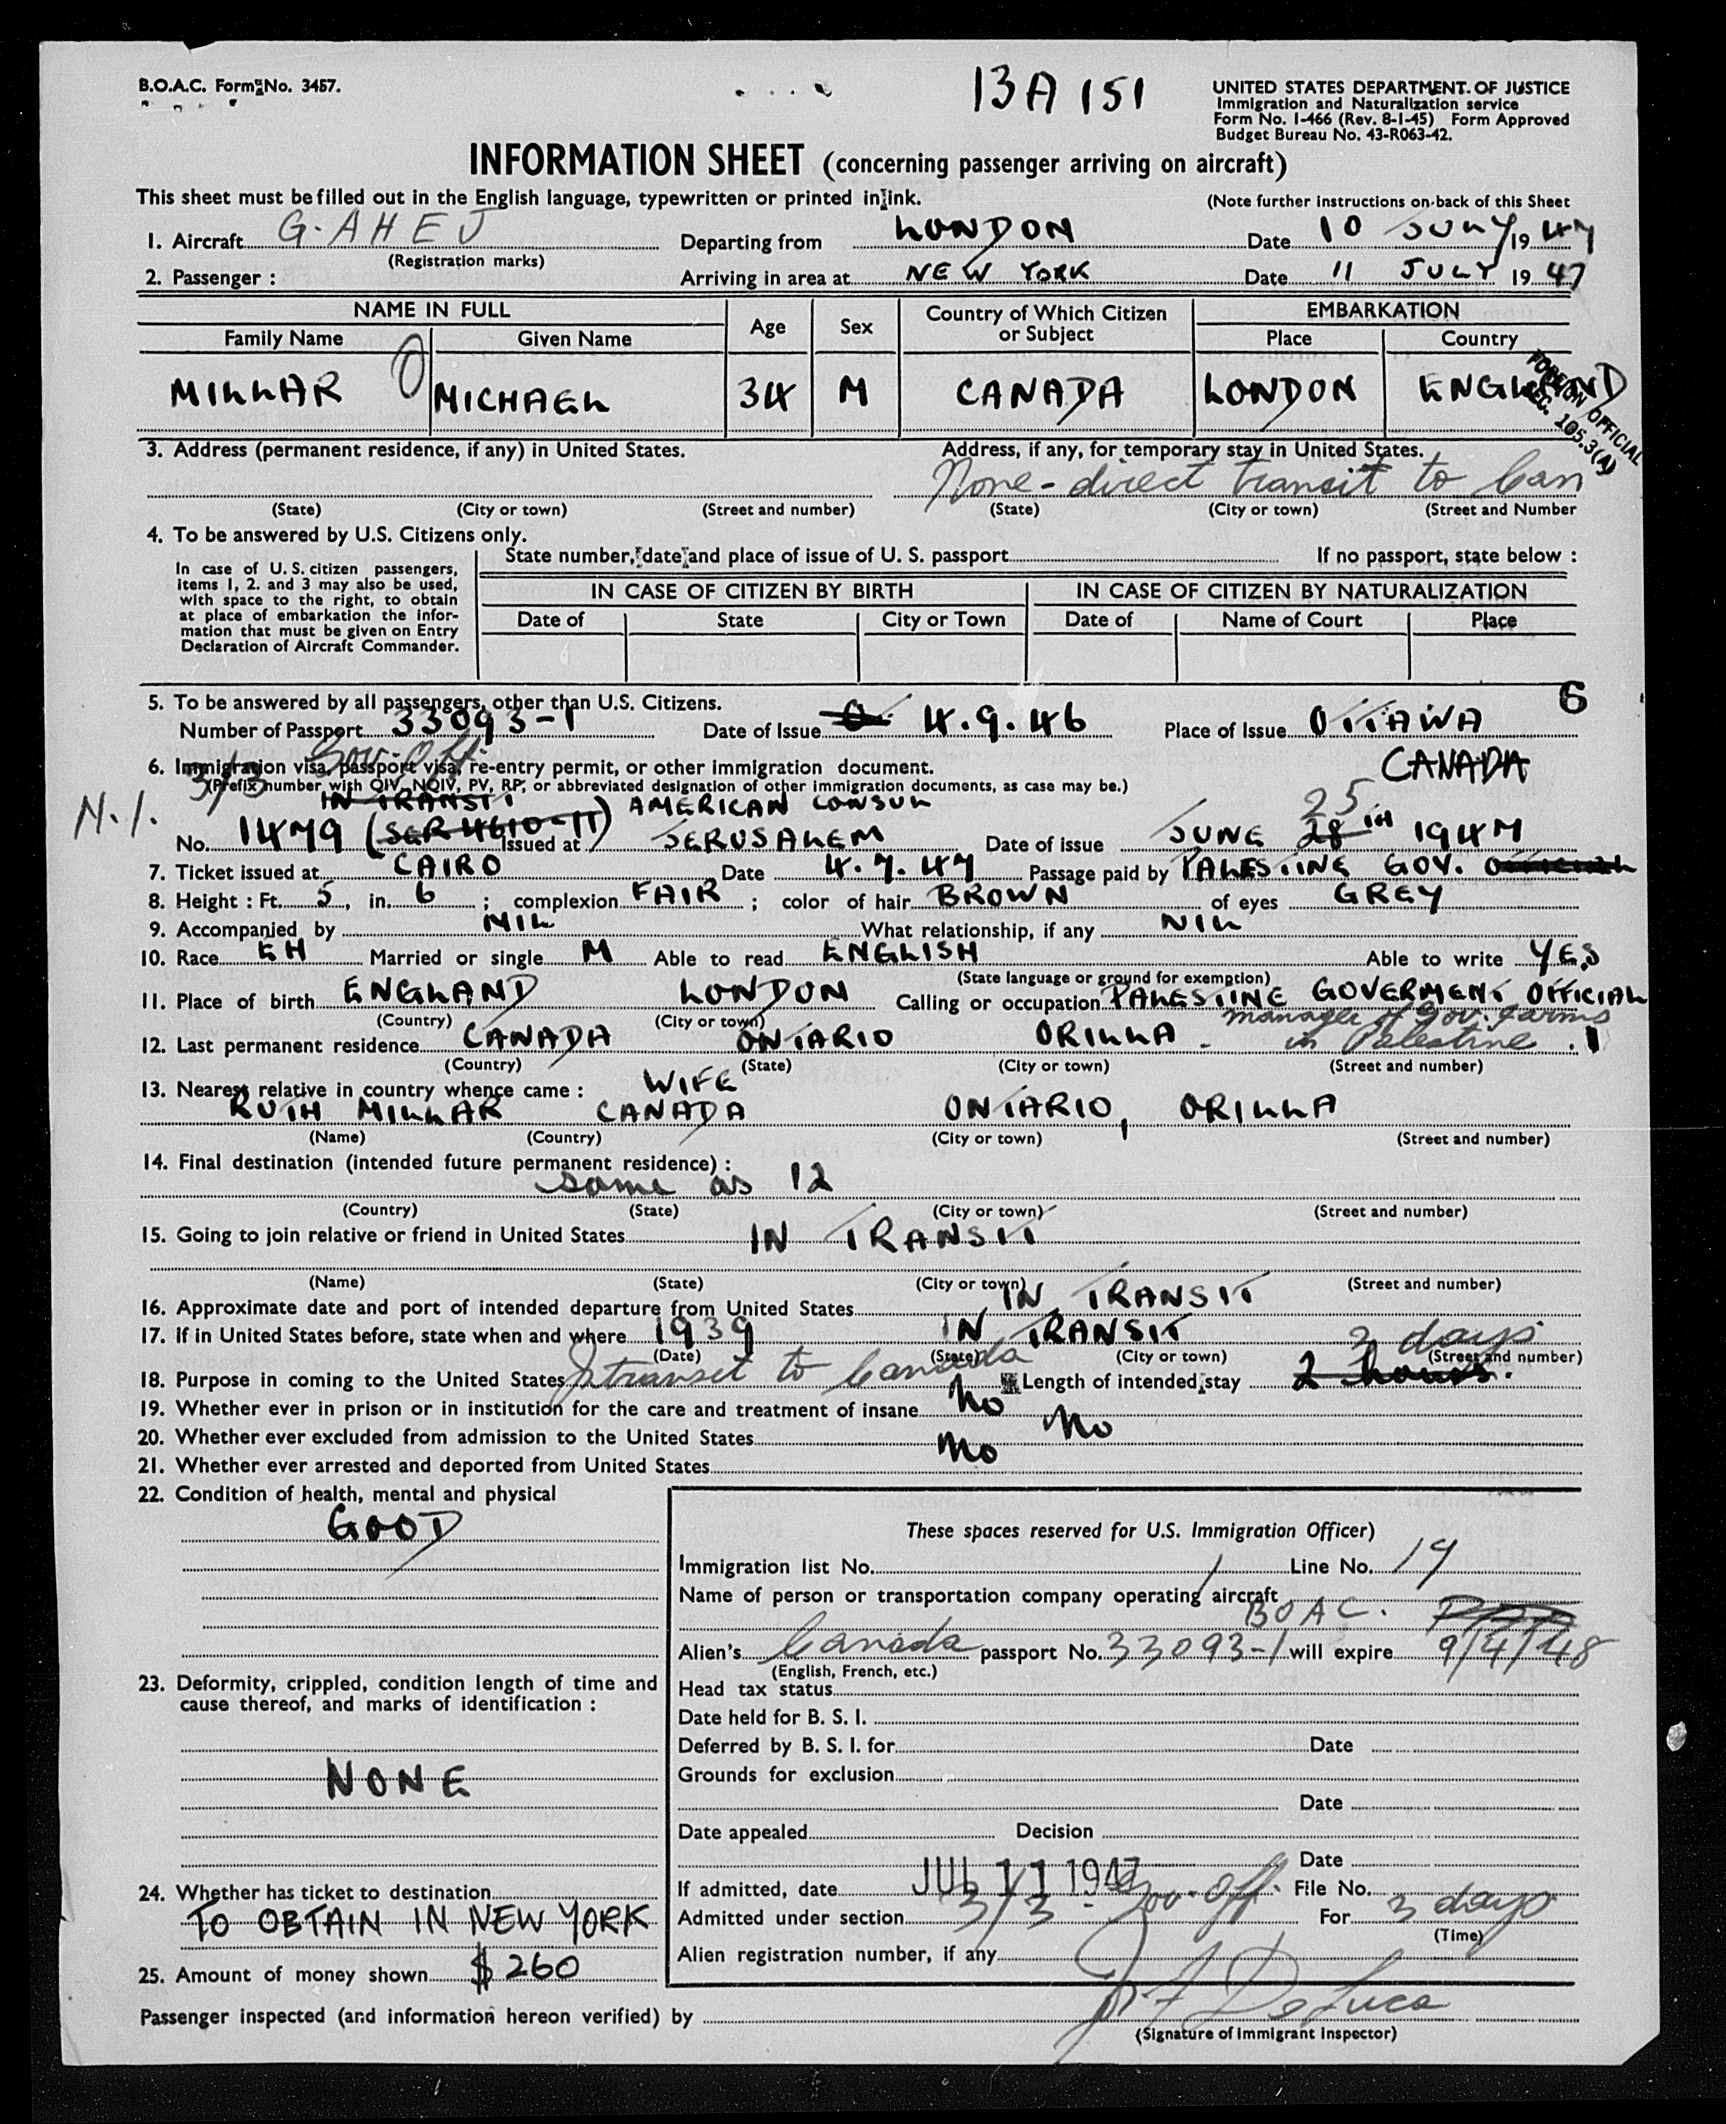 B.O.A.C. Form No. 3457.
13A 151
UNITED STATES DEPARTMENT OF JUSTICE
Immigration and Naturalization service
Form No. I-466 (Rev. 8-1-45) Form Approved
Budget Bureau No. 43-R063-42.
INFORMATION SHEET (concerning passenger arriving on aircraft)
This sheet must be filled out in the English language, typewritten or printed in ink.
(Note further instructions on back of this Sheet
1. Aircraft G-AHEJ Departing from LONDON Date 10 JULY 1947
(Registration marks)
2. Passenger : Arriving in area at NEW YORK Date 11 JULY 1947
NAME IN FULL Age Sex Country of Which Citizen or Subject EMBARKATION
Family Name Given Name Place Country
MILLAR MICHAEL 34 M CANADA LONDON ENGLAND
FOREIGN OFFICIAL
SEC. 105.3(A)
3. Address (permanent residence, if any) in United States. Address, if any, for temporary stay in United States.
None - direct transit to Can
(State) (City or town) (Street and number) (State) (City or town) (Street and Number
4. To be answered by U.S. Citizens only.
In case of U.S. citizen passengers,
items 1, 2. and 3 may also be used,
with space to the right, to obtain
at place of embarkation the infor-
mation that must be given on Entry
Declaration of Aircraft Commander.
State number, date and place of issue of U. S. passport If no passport, state below :
IN CASE OF CITIZEN BY BIRTH IN CASE OF CITIZEN BY NATURALIZATION
Date of State City or Town Date of Name of Court Place
5. To be answered by all passengers, other than U.S. Citizens. 6
Number of Passport 33093-1 Date of Issue 4.9.46 Place of Issue OTTAWA
CANADA
3/3 Gov. Off.
6. Immigration visa, passport visa, re-entry permit, or other immigration document.
(Prefix number with QIV, NQIV, PV, RP, or abbreviated designation of other immigration documents, as case may be.)
N.I.
IN TRANSIT AMERICAN CONSUL 25
No. 1479 (SER 4610-11) Issued at JERUSALEM Date of issue JUNE 28TH 1947
7. Ticket issued at CAIRO Date 4.7.47 Passage paid by PALESTINE GOV. OFFICIAL
8. Height : Ft. 5, in. 6 ; complexion FAIR ; color of hair BROWN of eyes GREY
9. Accompanied by NIL What relationship, if any NIL
10. Race EH Married or single M Able to read ENGLISH Able to write YES
(State language or ground for exemption)
11. Place of birth ENGLAND LONDON Calling or occupation PALESTINE GOVERMENT OFFICIAL
(Country) (City or town) manager of Gov. farms
12. Last permanent residence CANADA ONTARIO ORILLA in Palestine . 1
(Country) (State) (City or town) (Street and number)
13. Nearest relative in country whence came : WIFE
RUTH MILLAR CANADA ONTARIO, ORILLA
(Name) (Country) (City or town) (Street and number)
14. Final destination (intended future permanent residence) :
same as 12
(Country) (State) (City or town) (Street and number)
15. Going to join relative or friend in United States IN TRANSIT
(Name) (State) (City or town) (Street and number)
16. Approximate date and port of intended departure from United States IN TRANSIT
17. If in United States before, state when and where 1939 IN TRANSIT
(Date) (State) (City or town) (Street and number)
3 days
18. Purpose in coming to the United States In transit to Canada Length of intended stay 2 hours.
19. Whether ever in prison or in institution for the care and treatment of insane No
20. Whether ever excluded from admission to the United States No
21. Whether ever arrested and deported from United States No
22. Condition of health, mental and physical
GOOD
23. Deformity, crippled, condition length of time and
cause thereof, and marks of identification :
NONE
24. Whether has ticket to destination
TO OBTAIN IN NEW YORK
25. Amount of money shown $ 260
These spaces reserved for U.S. Immigration Officer)
Immigration list No. 1 Line No. 14
Name of person or transportation company operating aircraft
BOAC.
Alien's Canada passport No. 33093-1 will expire 9/4/48
(English, French, etc.)
Head tax status
Date held for B. S. I.
Deferred by B. S. I. for Date
Grounds for exclusion
Date
Date appealed Decision
Date
If admitted, date JUL 11 1947 File No.
Admitted under section 3/3 - Gov. Off. For 3 days
(Time)
Alien registration number, if any
Passenger inspected (and information hereon verified) by De Luca
(Signature of Immigrant Inspector)